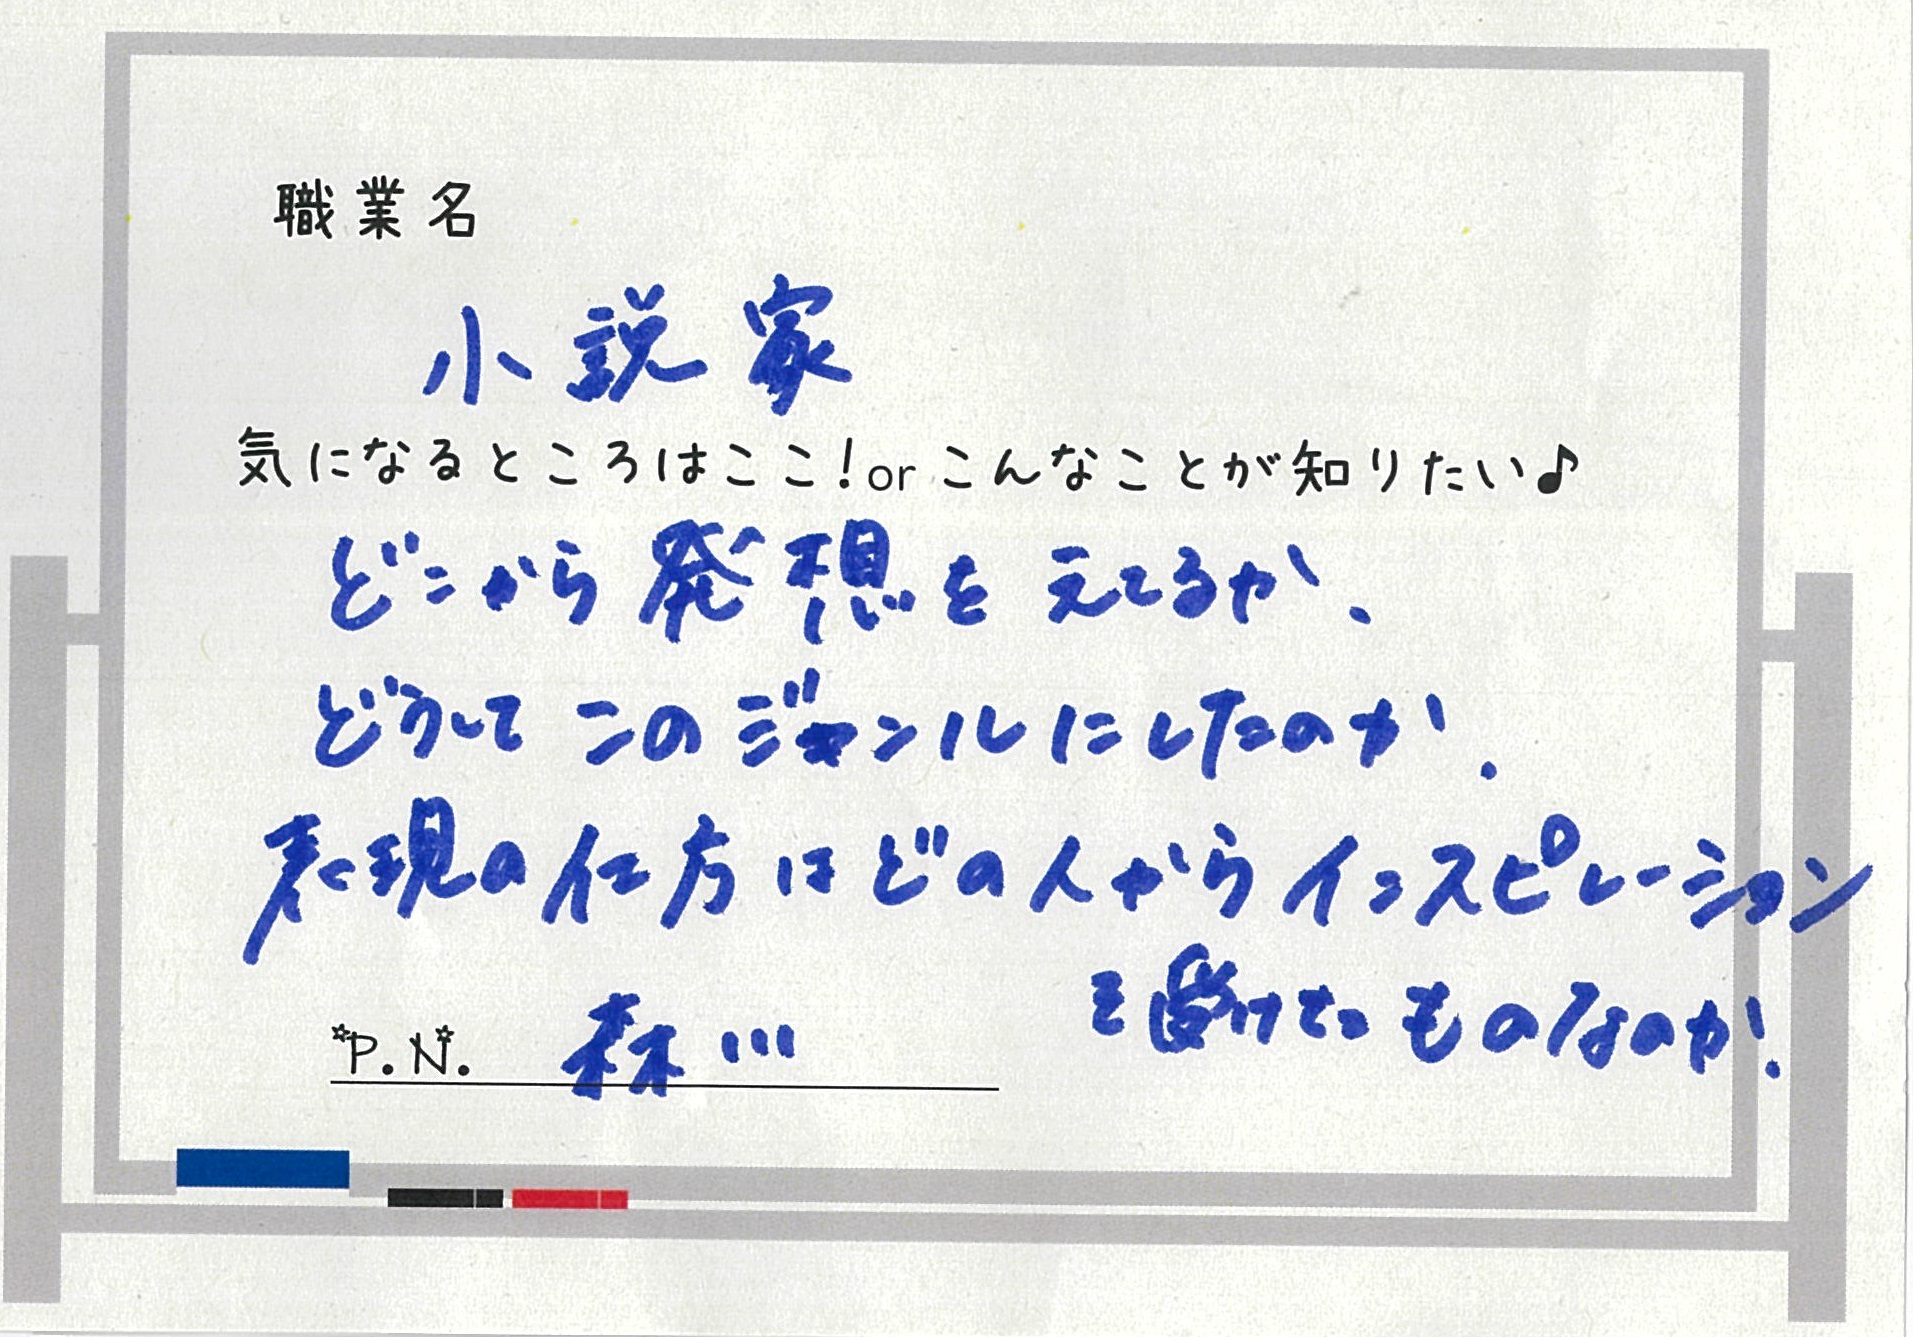 職業名
小説家
気になるところはここ!orこんなことが知りたい♪
どこから発想をえてるか、
どうしてこのジャンルにしたのか.
表現の仕方はどの人からインスピレーション
を受けてのものなのか.
P.N. 森川